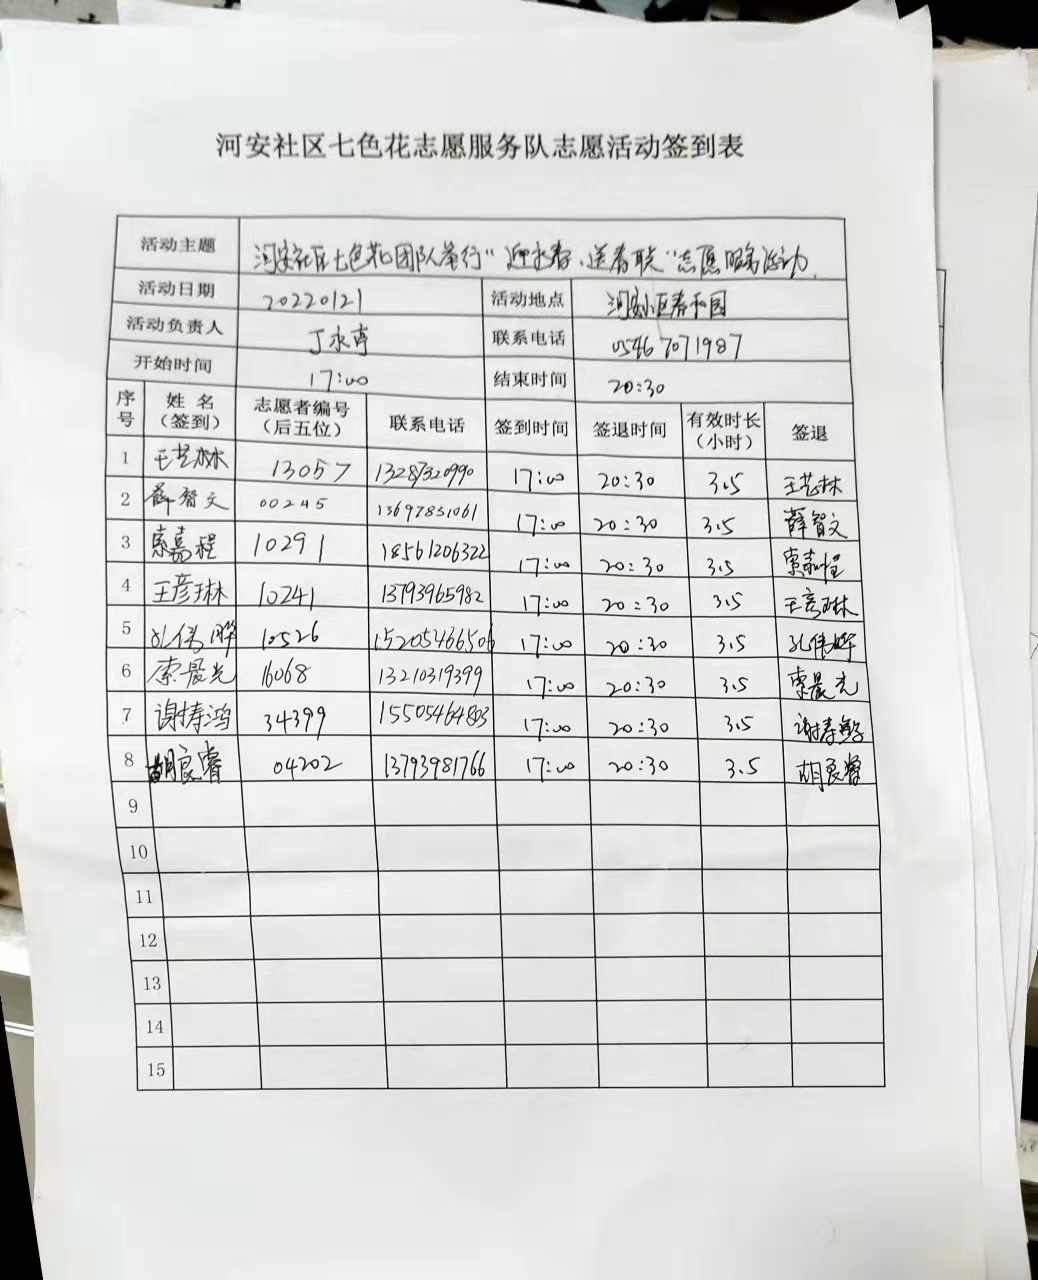 河安社区七色花志愿服务队志愿活动签到表
活动主题 河安社区七色花团队举行"迎新春、送春联"志愿服务活动
活动日期 20220121 活动地点 河安小区春和园
活动负责人 丁永亭 联系电话 0546 7071987
开始时间 17:00 结束时间 20:30
序号 姓名（签到） 志愿者编号（后五位） 联系电话 签到时间 签退时间 有效时长（小时） 签退
1 王艺林 13057 13287320990 17:00 20:30 3.5 王艺林
2 薛智文 00245 13697831061 17:00 20:30 3.5 薛智文
3 索嘉程 10291 18561206322 17:00 20:30 3.5 索嘉程
4 王彦琳 10241 13793965982 17:00 20:30 3.5 王彦琳
5 孔伟晔 10526 15205466506 17:00 20:30 3.5 孔伟晔
6 索晨光 16068 13210319399 17:00 20:30 3.5 索晨光
7 谢涛鸿 34399 15505464803 17:00 20:30 3.5 谢涛鸿
8 胡良睿 04202 13793981766 17:00 20:30 3.5 胡良睿
9
10
11
12
13
14
15